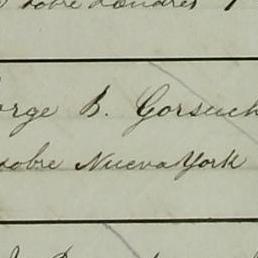 sobre Londres
orge B. Gorsuch
sobre Nueva York